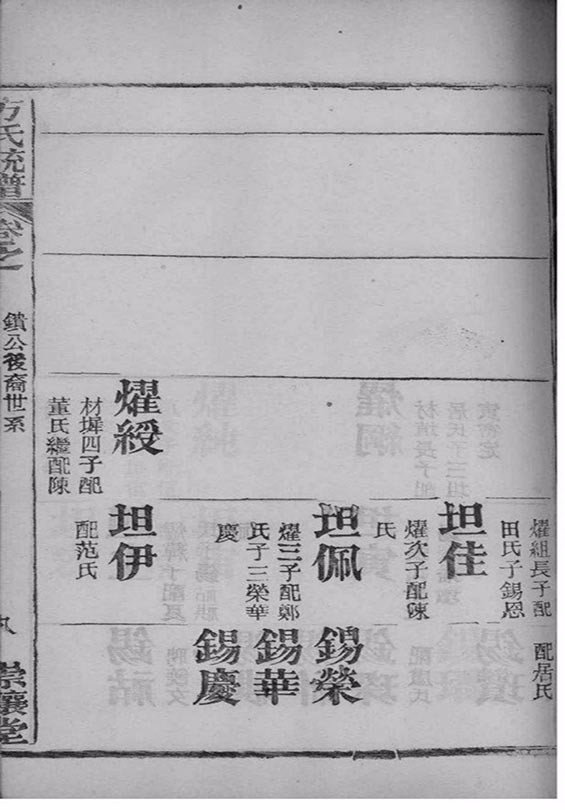 燿組長子配
田氏子錫恩
配居氏
坦佳
燿次子配陳
氏
坦佩
燿三子配鄭
氏子三榮華
慶
錫榮
錫華
錫慶
燿綬
材墀四子配
董氏繼配陳
坦伊
配范氏
方氏統譜
卷之
公後裔世系
崇讓堂